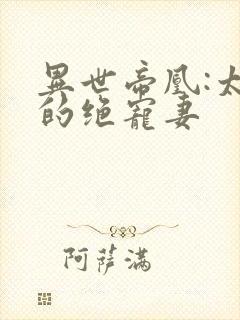 異世帝凰:太
的绝寵妻
阿萨满